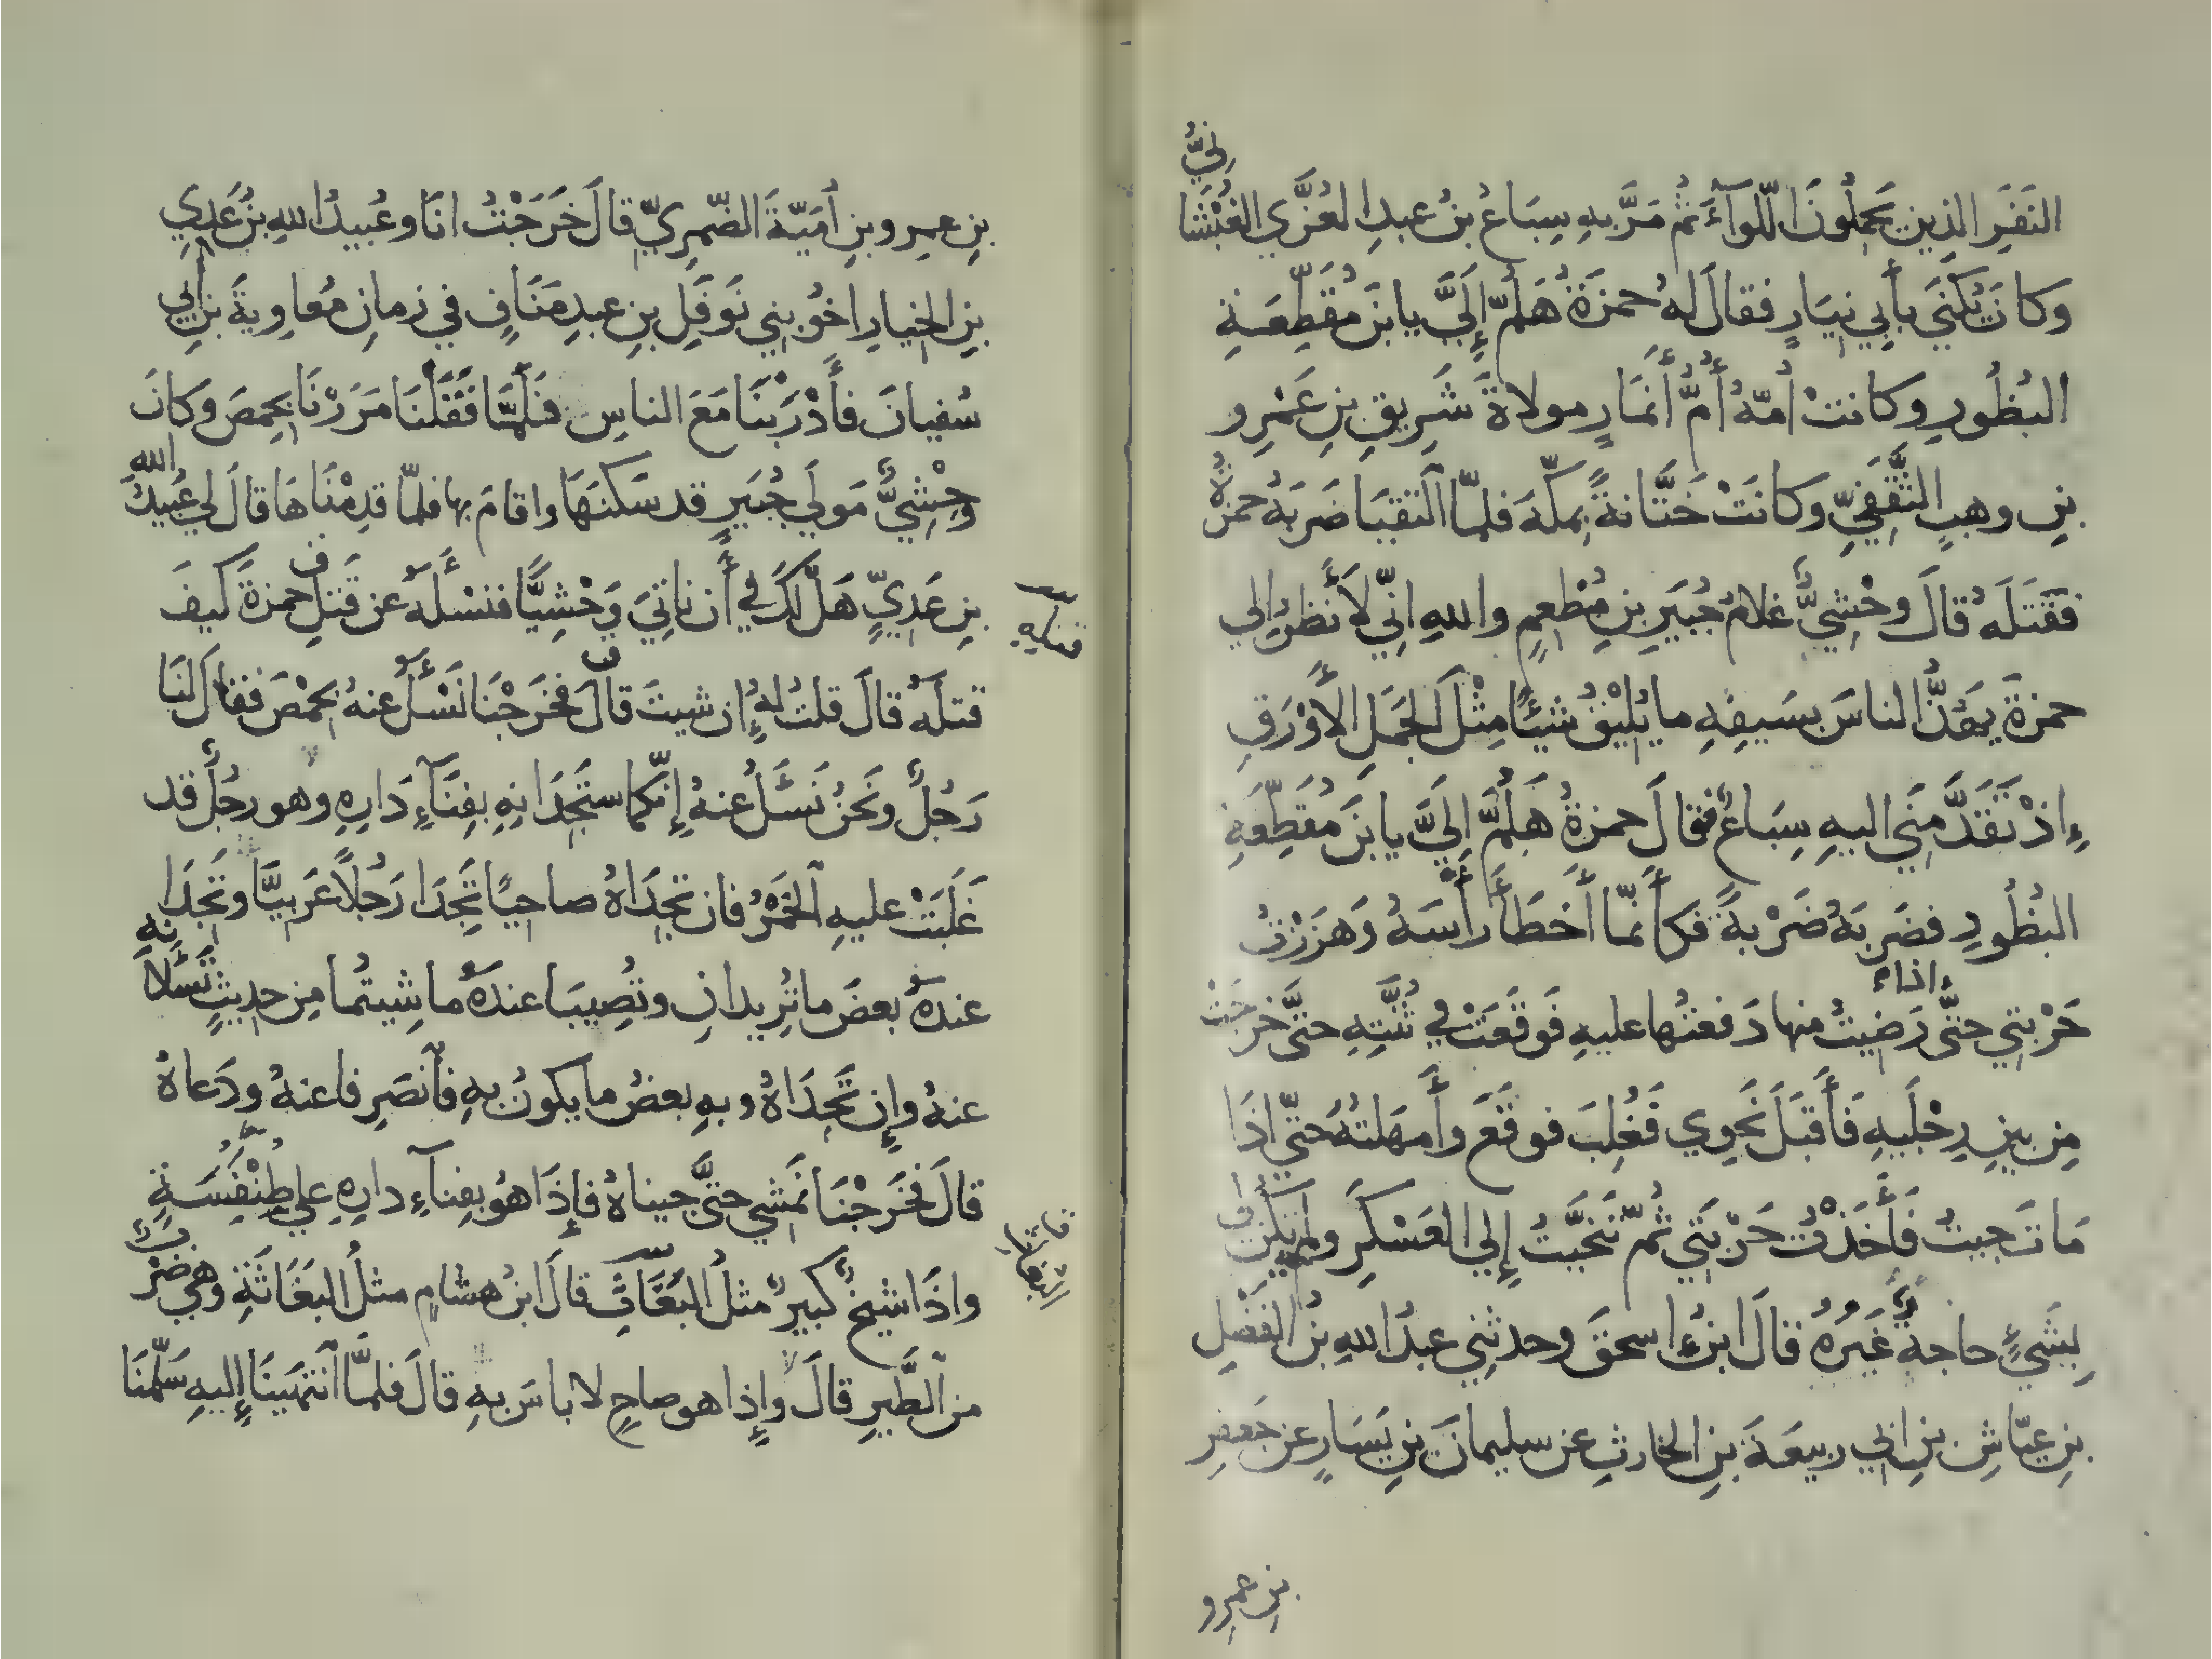 النَفَرِ الذِين يَحمِلُونَ اللّوآءَ ثُم مَرَّ بهِ سِبَاعُ بنُ عبدِ العُزَّي الغُبْشَا
نِيُّ
وَكانَ يُكنَي بأبِي نِيَارٍ فقالَ لهُ حمزَةُ هَلُمّ إِلَيَّ يا بنَ مُقَطِّعَةِ
البُظُورِ وكانتْ أمّهُ أُمُّ أَنمَارٍ مولاةَ شَرِيقِ بنِ عَمْرِو
بنِ وهبٍ الثَّقَفِيِّ وَكانَتْ خَتَّانةً بمكّةَ فلمّا التقيَا ضَرَبَهُ حمزةُ
فَقَتَلَهُ قالَ وحْشِيٌّ غلامُ جُبَيرِ بنِ مُطْعِمٍ واللهِ انّي لَأَنظرُ إلي
حمزةَ يَهُذُّ الناسَ بسَيفِهِ ما يُلِيْقُ شيئًا مِثْلَ الجَمَلِ الأَوْرَقِ
إِذْ تَقَدَّمَنِي اليهِ سِبَاعٌ فقالَ حمزةُ هَلُمَّ إِلَيَّ يا بنَ مُقَطِّعَةِ
البُظُورِ فضَرَبَهُ ضَرْبةً فكأنّما أَخطَأَ رَأسَهُ وَهَزَزْتُ
حَرْبتِي حتَّى إذاء رَضِيتُ منها دَفعتُها عليهِ فَوقَعَتْ في ثُنَّتِهِ حتَّى خَرَجَتْ
مِن بينِ رِجْلَيهِ فَأَقبَلَ نَحوِي فَغُلِبَ فوقَعَ وأَمهَلتُهُ حَتّي اذَا
مَاتَ جيتُ فَأَخَذْتُ حَرْبَتِي ثُمّ تَنَحَّيتُ إِلي العَسْكَرِ ولم تكن لي
بِشَيْءٍ حاجةٌ غَيرُهُ قالَ ابنُ اسحقَ وحدثنِي عبدُ اللهِ بنُ الفَضْلِ
بنِ عيّاشِ بنِ ابي ربيعَةَ بنِ الحارثِ عن سليمانَ بنِ يَسَارٍ عن جَعفرِ
بنِ عمرِو
بنِ عمرِو بنِ أمَيّةَ الضّمرِيّ قالَ خَرَجْتُ انَا وعُبيدُ اللهِ بنُ عَدِيِ
بنِ الخِيارِ اخُو بنِي نَوفَلِ بنِ عبدِ مَنَافٍ في زمانِ مُعاوِيةَ بنِ أبي
سُفيانَ فأَدْرَبْنَا مَعَ الناسِ فَلَمَّا قَفَلْنَا مَرَرْنَا بِحِمصَ وَكانَ
وحْشِيٌّ مَولَي جُبَيرٍ قد سَكنَهَا واقامَ بها فلمّا قدِمْنَاهَا قالَ لي عُبيدُ الله
بنِ عَدِيٍّ هَل لَكَ في أَن نَاتِيَ وَحْشِيًّا فنسْأَلَهُ عن قَتلِ حمزةَ كيفَ
قتلَهُ قالَ قلتُ لهُ إن شيتَ قالَ فخَرَجْنَا نَسْأَلُ عنهُ بِحمْصَ فقالَ لنَا
رَجُلٌ ونَحْنُ نَسْئَلُ عنهُ إِنّكما ستَجِدَانِهِ بفِنَآءِ دَارِهِ وهو رجُلٌ قد
غَلَبَتْ عليهِ الخَمْرُ فان تجِدَاهُ صاحيًا تَجِدَا رَجُلاً عَربيًّا وتَجِدَا
عندَهُ بعضَ ما تُريدانِ وتُصِيبَا عندَهُ ما شِيتُما مِن حدِيثٍ تَسْئَلَانِهِ
عنهُ وإِن تَجِدَاهُ وبهِ بعضُ ما يكونُ بهِ فٱنصَرِفا عنهُ ودَعاهُ
قالَ فخَرَجْنَا نَمشِي حتَّي جيناهُ فإِذَا هُو بفِناءِ دارِهِ علي طِنْفِسَةٍ
واذَا شيخٌ كبيرٌ مثلُ البُغَاثِ قالَ ابنُ هشامٍ مثلُ البَغَاثَةِ وهي ضَرْبٌ
من الطَّيرِ قالَ وإِذا هو صاحٍ لا باسَ بهِ قالَ فلمَّا ٱنتهَينَا إِليهِ سَلّمنَا